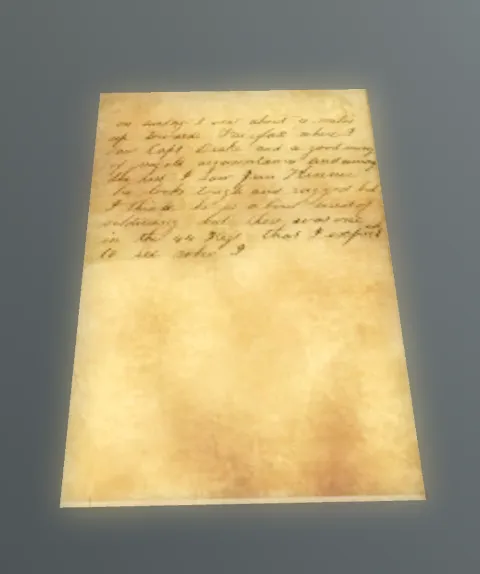 on sunday I was about 10 miles
up towards Fairfax where I
saw Capt Drake and a good many
of my old acquaintance and among
the rest I saw Jim
he looks tough and rugged but
I think he is a bout tired of
soldiering but there was one
in the 44 Regt that I expected
to see when I